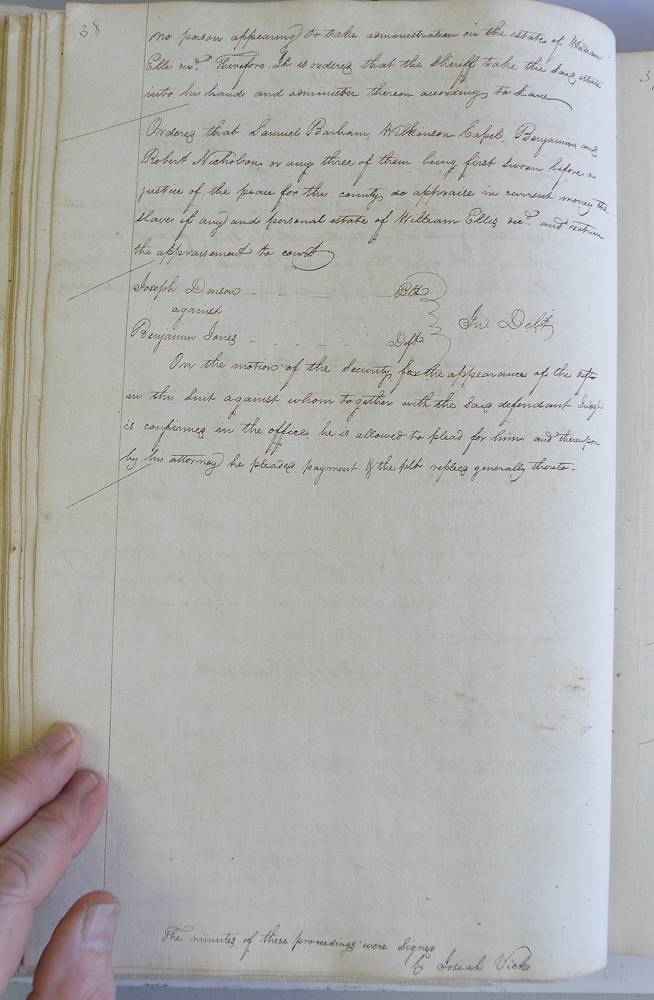 38
no person appearing to take administration on the estate of William
Ellis decd. Therefore It is ordered that the Sheriff take the said estate
into his hands and administer thereon according to Law
Ordered that Samuel Barham, Wilkinson Capel, Benjamin and
Robert Nicholson or any three of them being first sworn before a
justice of the peace for this county do appraise in current money the
slaves if any and personal estate of William Ellis decd. and return
the appraisement to court
Joseph Denson - - - - Plt
against
In Debt
Benjamin Jones - - - - Deft
On the motion of the Security for the appearance of the deft
in this Suit against whom together with the said defendant Judgt
is confirmed in the office he is allowed to plead for him and thereupon
by his attorney he pleaded payment & the plt replied generally thereto -
The minutes of these proceedings were Signed
by Joseah Vick
3